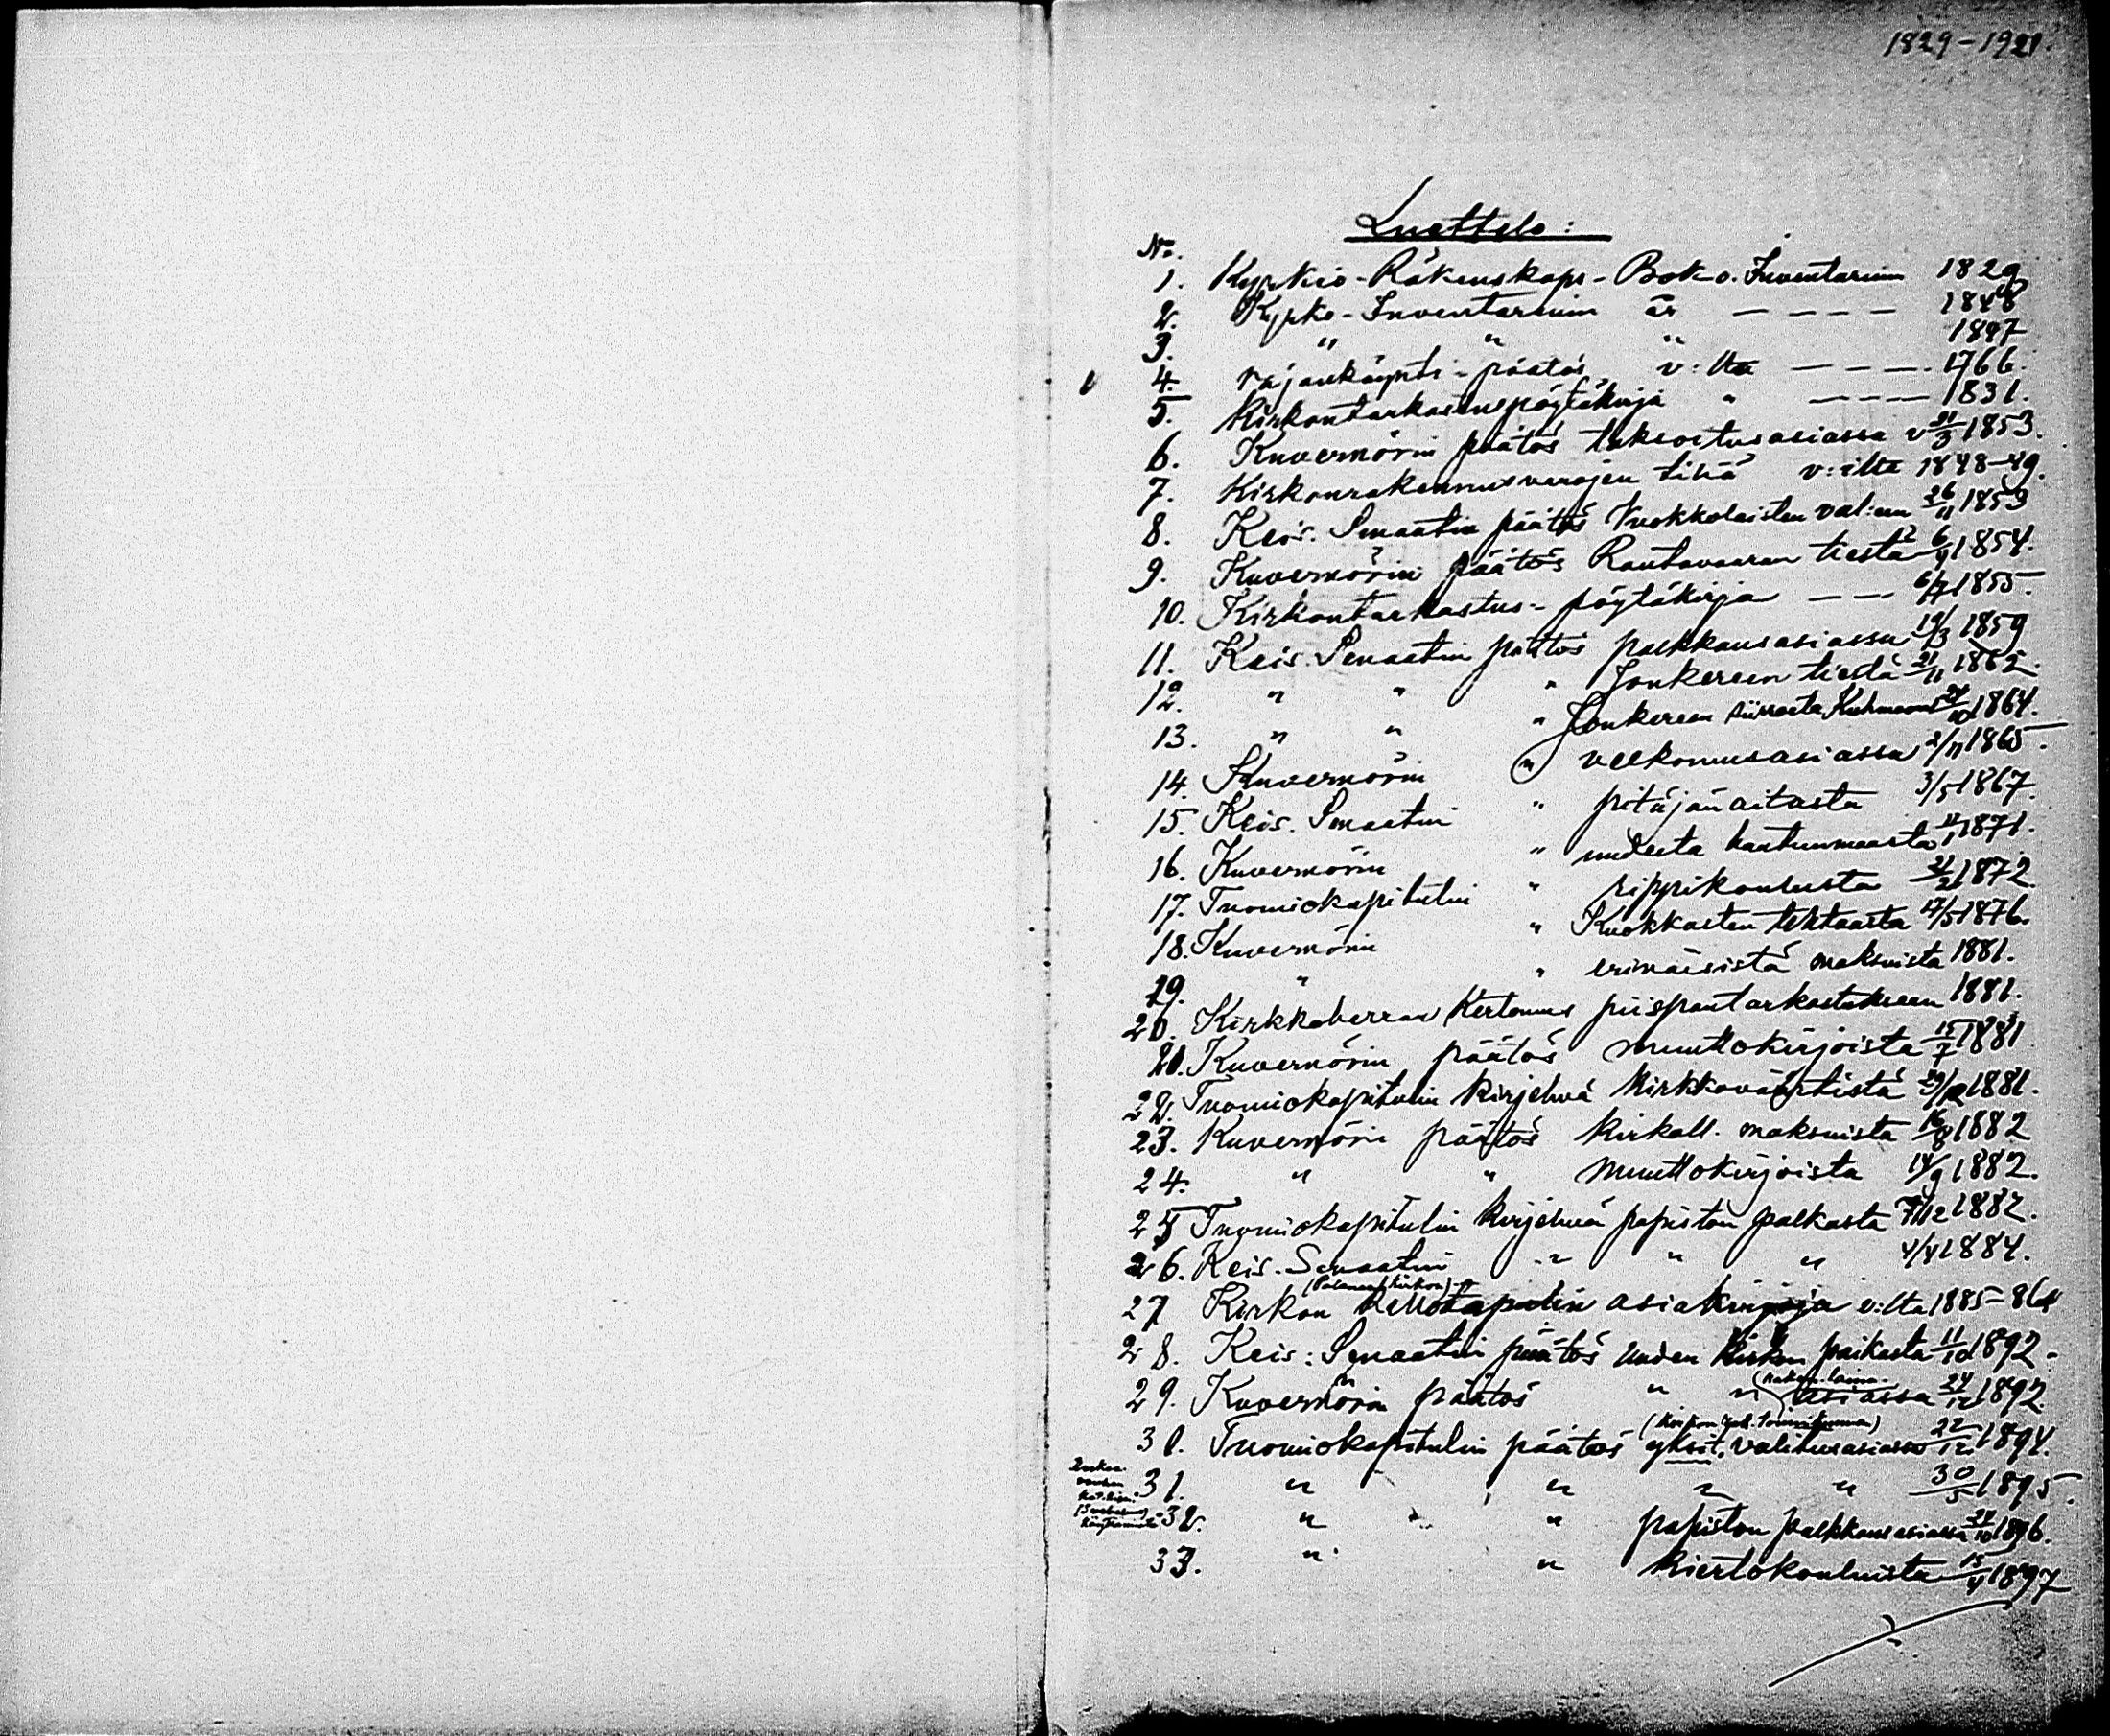 1829-1921.
Luettelo:
No.
1. Kyrkio-Räkenskaps-Bok o. Inventarium 1829
2. Kyrko-Inventarium år — — — — 1848
3. " " " 1897
4. rajankäynti-päätös v:lta — — — 1766.
5. Kirkontarkastuspöytäkirja " — — — 1831.
6. Kuvernörin päätös taksoitusasiassa v 21/3 1853.
7. Kirkonrakennusverojen tiliä v:ilta 1848-49.
8. Keis. Senaatin päätös Vuokkolaisten val:een 26/11 1853
9. Kuvernörin päätös Rautavaaran tiestä 6/4 1854.
10. Kirkontarkastus-pöytäkirja — — 6/7 1855.
11. Keis. Senaatin päätös palkkausasiassa 19/3 1859
12. " " " Jonkereen tiestä 21/11 1862.
13. " " " Jonkereen siirrosta Kuhmoon 1864.
14. Kuvernörin " ulkonmusasiassa 2/11 1865.
15. Keis. Senaatin " pitäjän aitasta 3/5 1867.
16. Kuvernörin " uudesta hautuumaasta 1871.
17. Tuomiokapitulin " rippikoulusta 1872.
18. Kuvernörin " Kuokkasten tehtaasta 17/5 1876.
19. " " erinäisistä maksuista 1881.
20. Kirkkoherran Kertomus piispantarkastukseen 1881.
21. Kuvernörin päätös muuttokirjoista 15/7 1881
22. Tuomiokapitulin kirjelmä kirkkoväärtistä 29/12 1881.
23. Kuvernörin päätös kirkoll. maksuista 16/8 1882
24. " " muuttokirjoista 14/9 1882.
25 Tuomiokapitulin kirjelmä papiston palkasta 7/12 1882.
26. Keis. Senaatin " " " 4/4 1884.
27 Kirkon asiakirjoja v:lta 1885-86
28. Keis: Senaatin päätös uuden kirkon paikasta 11/10 1892.
29. Kuvernörin päätös " " (raken. laina-) asiassa 24/12 1892.
30. Tuomiokapitulin päätös yksit. valitusasiassa 22/12 1894.
31. " " " " 30/5 1895.
32. " " papiston palkkausasiassa 27/10 1896.
33. " " kiertokouluista 15/4 1897